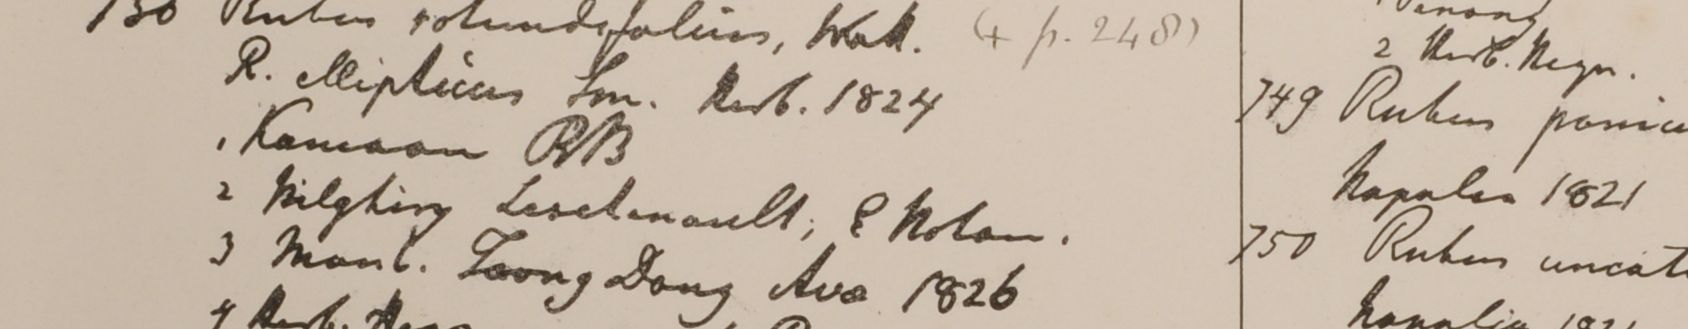 730 Rubus rotundifolius, Wall. (+ p. 248)
R. ellipticus Sm. Herb. 1824
1 Kamaon RB
2 Nilghiry Leschenault; E Notan.
3 Mont. Taong Dong Ava 1826
4 Herb.
Penang
2 Herb. Heyn.
749 Rubus panicu
Napalia 1821
750 Rubus uncat
Napalia 1821